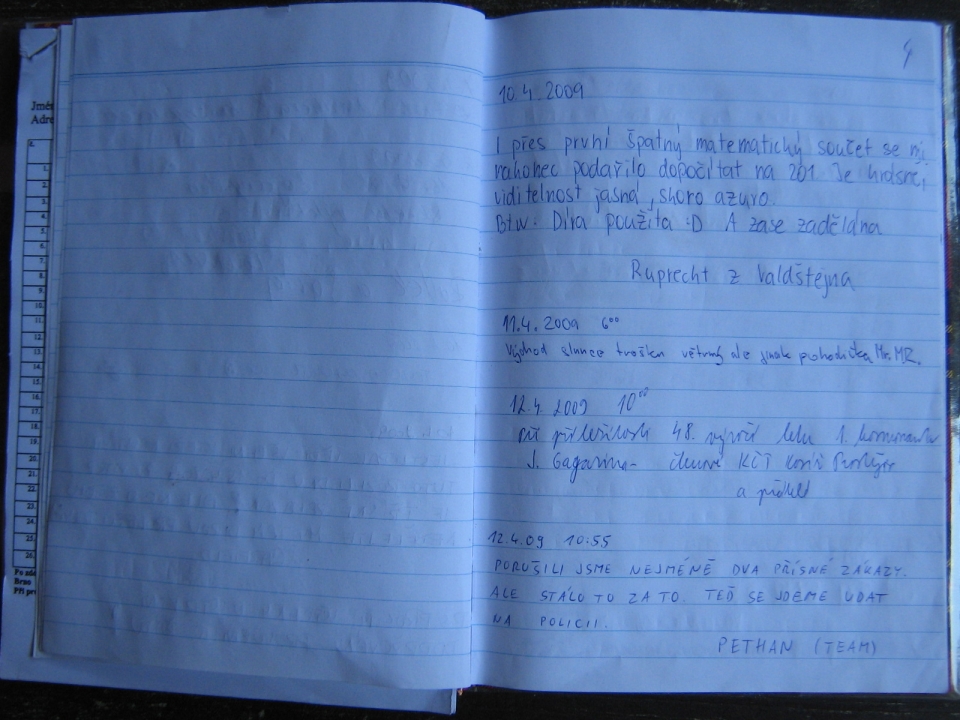 Jmé
Adre
1.
2.
3.
4.
5.
6.
7.
8.
9.
10.
11.
12.
13.
14.
15.
16.
17.
18.
19.
20.
21.
22.
23.
24.
25.
26.
Brno
4
10.4.2009
I přes první špatný matematický součet se mi
nakonec podařilo dopočítat na 201. Je krásně,
viditelnost jasná, skoro azuro.
Btw: Díra použita :D A zase zadělána
Ruprecht z Valdštejna
11.4.2009 6⁰⁰
Východ slunce trošku větrný ale jinak pohodička Mr. MR.
12.4.2009 10⁰⁰
při příležitosti 48. výročí letu 1. kosmonauta
J. Gagarina - členové KČT Prostějov
a přátelé
12.4.09 10:55
PORUŠILI JSME NEJMÉNĚ DVA PŘÍSNÉ ZÁKAZY.
ALE STÁLO TO ZA TO. TEĎ SE JDEME UDAT
NA POLICII.
PETHAN (TEAM)